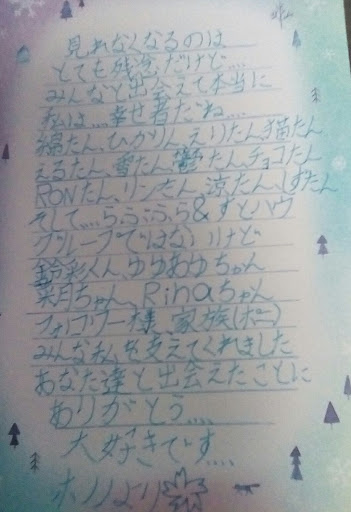 見れなくなるのは
とても残念だけど…
みんなと出会えて本当に
私は....幸せ者だね....
綿たん、ひかりん、えりたん、猫たん
えるたん、雪たん、鬱たん、チョコたん
RONたん、リンさん、涼たん、しずたん
そして....らぶふら&すとハウ
グループではないけど
鈴彩くん、ゆゆあゆちゃん
葉月ちゃん、Rinaちゃん
フォロワー様、家族(ポニ)
みんな私を支えてくれました
あなた達と出会えたことに
ありがとう....
大好きです....
ホノより